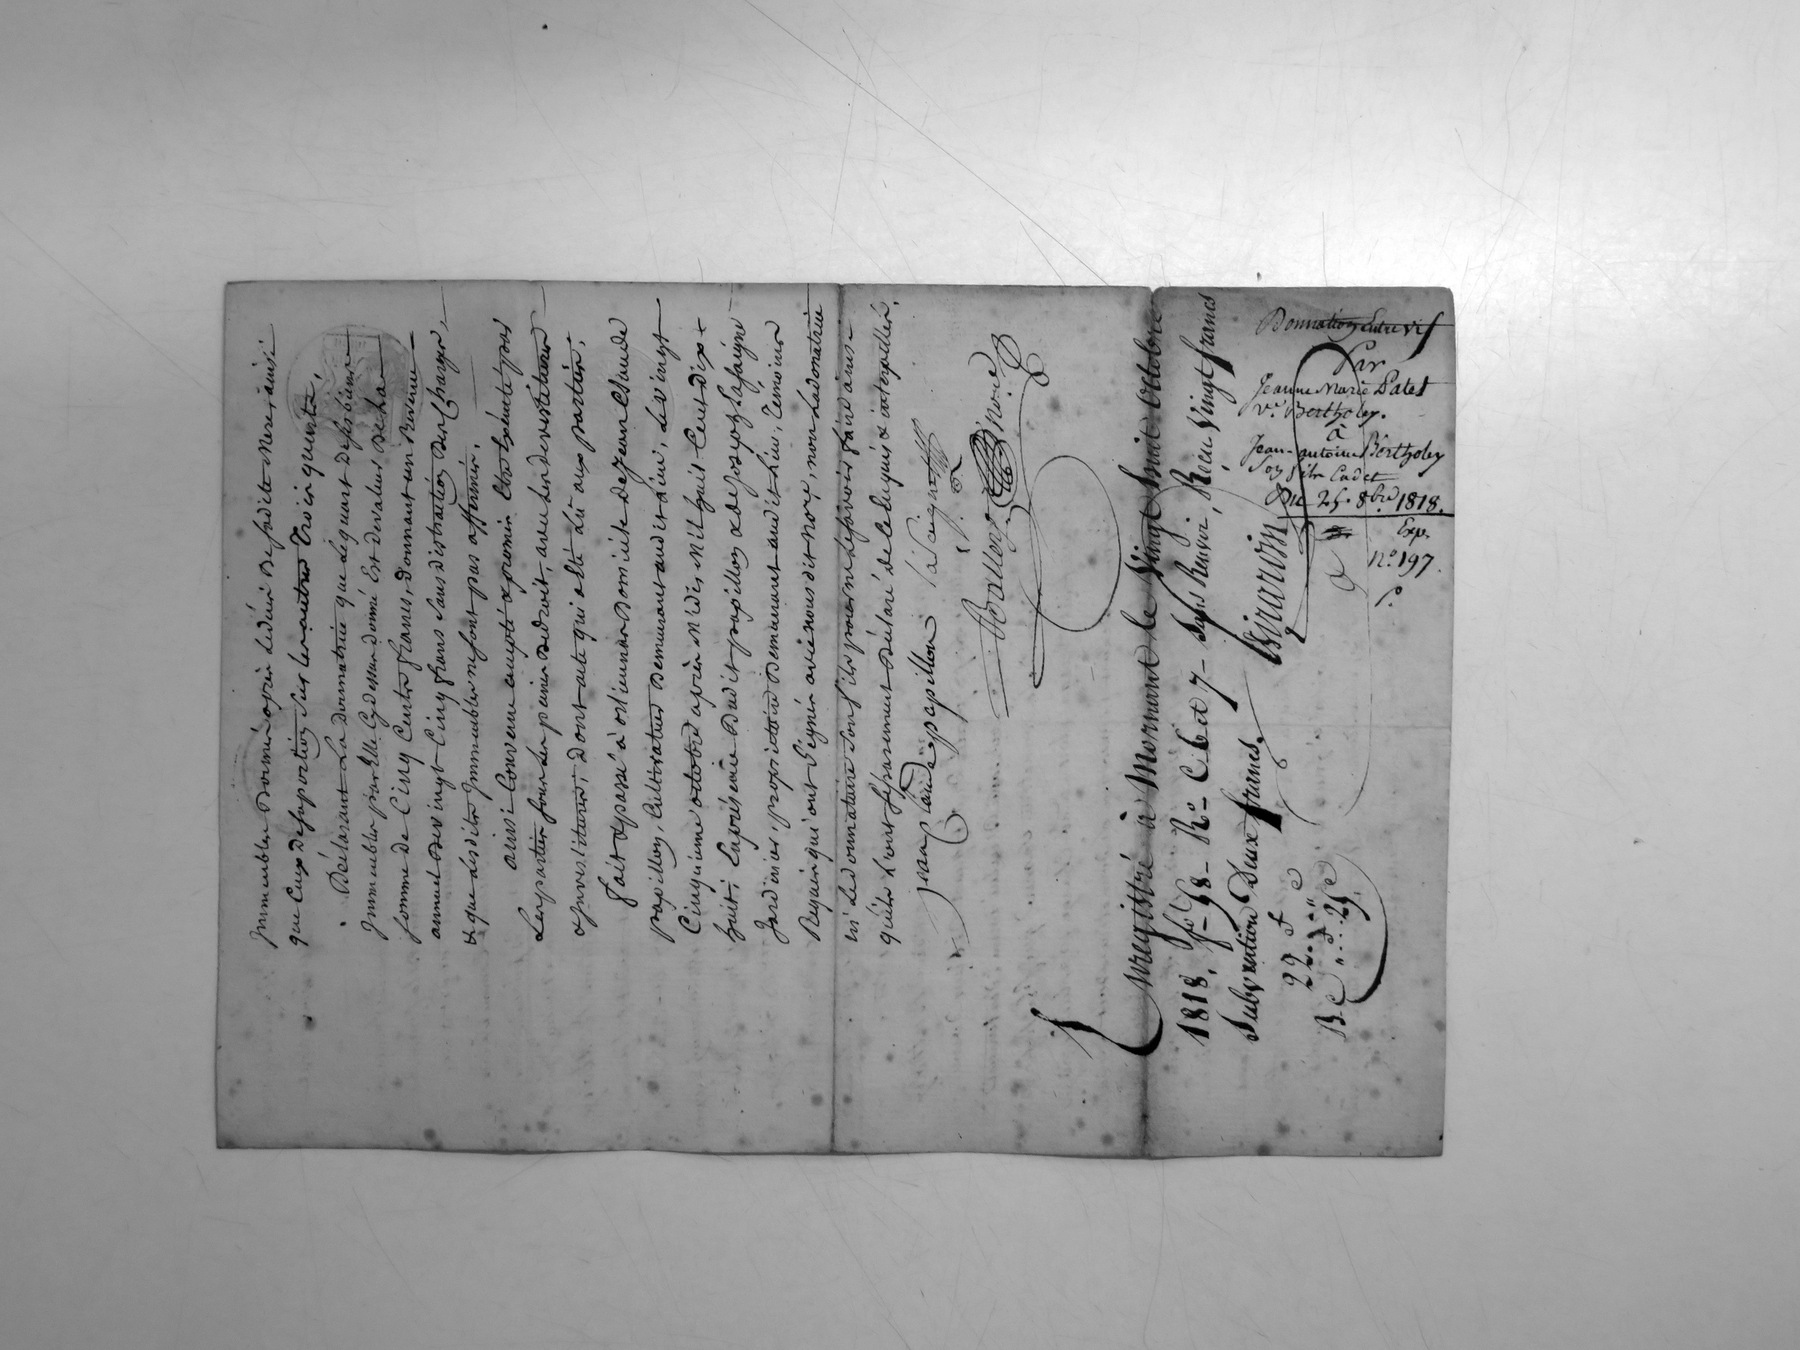 Immeubles donnés après le décès de sadite mere, ainsi
que ceux de sa portion sur les autres trois quarts.
Déclarant la donnatrice que le quart de ses biens
Immeubles par elle cy dessus donné est de valeur de la
somme de Cinq Cents francs, donnant un Revenu
annuel de vingt Cinq francs sans distraction des charges,
& que lesdits Immeubles ne sont pas affermés.
ainsi Convenu accepté & promis être exécuté par
les parties sous les peines de droit, avec les devestitures
& investitures, dont acte qui a été lû aux parties.
fait & passé à orlienas domicile de Jean Claude
papillon, Cultivateur demeurant audit lieu, le vingt
Cinquieme octobre après midi mil huit Cent dix
huit; En présence dudit papillon & de joseph Lasaigne
Jardinier, propriétaire demeurant audit lieu, Temoins
Requis qui ont Signés avec nous dit note, non la donatrice
ni le donnataire Sous.és pour ne le savoir faire ainsi
qu'ils l'ont séparement déclaré de ce Requis & interpellés.
jean Claude papillon Lasaigne
nore
Enregistré à Mornant le Vingt huit Octobre
1818, fo 98 Ro Cses 6 et 7 Sans Renvoi, Reçu Vingt francs
Subvention Deux francs.
Girardin
22 f
B C
Donnation Entre vifs
Par
Jeanne Marie Patet
Ve. Bertholey.
à
Jean-antoine Bertholey
Son fils Cadet
Du 25. 8bre 1818.
Exp.
No. 197.